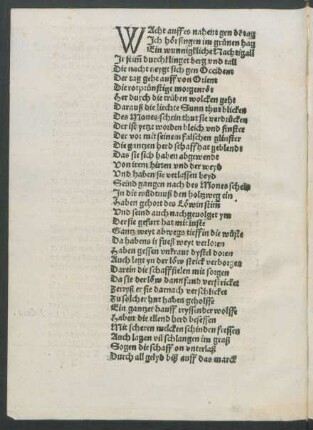 WAcht auff es nahent gen dē tag
Ich hör singen im grünen hag
Ein wunnigkliche Nachtigall
Ir stim durchklinget berg vnd tall
Die nacht neygt sich gen Occident
Der tag geht auff von Orient
Die rotprünstige morgenröt
Her durch die trüben wolcken geht
Darauß die liechte Sunn thut blicken
Des Mones schein thut sie verdrücken
Der ist yetz worden bleich vnd finster
Der vor mit seinem falschen glinster
Die gantzen herd schaff hat geblendt
Das sie sich haben abgewendt
Von irem hirten vnd der weyd
Vnd haben sie verlassen beyd
Seind gangen nach des Mones schein
In die wildtnuß den holtzweg ein
Haben gehört des Löwin stim
Vnd seind auch nachgeuolget ym
Der sie gefürt hat mit liste
Gantz weyt abwegs tieff in die wüste
Da habens ir süeß weyd verloren
Haben gessen vnkraut dystel doren
Auch legt yn der löw strick verborgen
Darein die schaff fielen mit sorgen
Da sie der löw dann fand verstricket
Zerryß er sie darnach verschlicket
Zu solcher hut haben geholffe
Ein gantzer hauff reyssender wolffe
Haben die ellend herd besessen
Mit scheren melcken schinden fressen
Auch lagen vil schlangen im graß
Sogen die schaff on vnterlaß
Durch all gelyd biß auff das marck